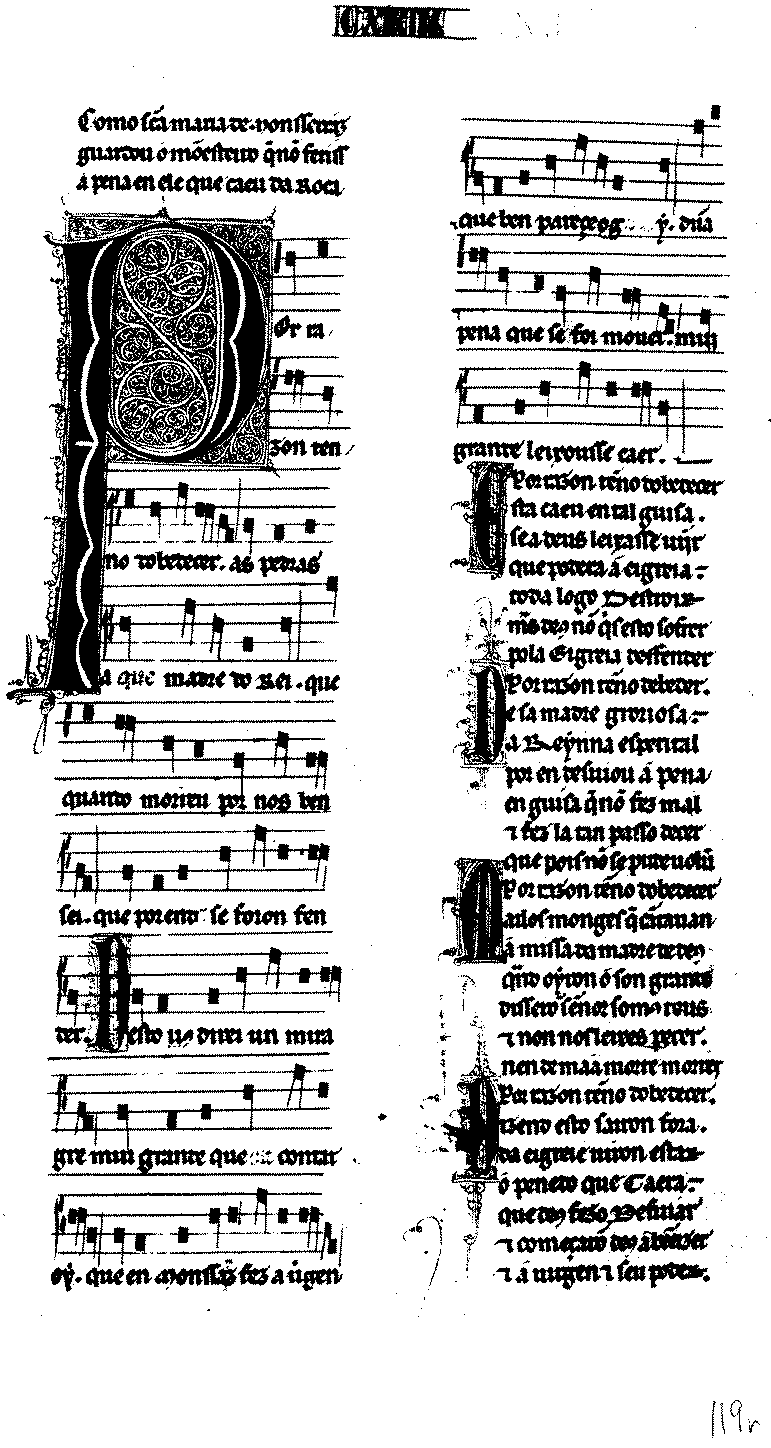 CXIII
Como sc̃a maria de monssarraz
guardou o mõesteiro q̃ nõ feriss
a pena en ele que caeu da Roca
Or ra
zon ten
no dobedecer. as pedras
a que madre do Rei. que
quando morreu por nos ben
sei. que porend se foron fen
der. Desto uꝯ direi un mira
gre mui grande que contar
oý. que en monssarraz fez a uirgen
que ben pareçe og ý. dũa
pena que se foi mouer. mui
grande leixousse caer.
Por razon tẽno dobedecer
sta caeu en tal guisa.
se a deus leixasse uĩjr
que podera á eigreia
toda logo Destroir
mas deꝯ nõ q̃s esto sofrer
pola Eigreia deffender
Por razon tẽno dobedecer.
E sa madre groriosa
a Reynna esperital
por en desuiou á pena
en guisa q̃ nõ fez mal
⁊ fez la tan passo decer
que pois nõ se pude uolũ
Por razon tẽno dobedecer
Mailos monges q̃ cãtauan
á missa da madre de deꝯ
q̃ndo oyron ó son grande
disserõ señor somꝯ teus
⁊ non nos leixes perer.
nen de maa morte morrer
Por razon tẽno dobedecer.
Deno esto sairon fora.
da eigreie uiron estar
ó penedo que Caera
que deꝯ fezo Desuiar
⁊ começarõ deꝯ á bẽeizer
⁊ á uirgen ⁊ seu poder.
119r